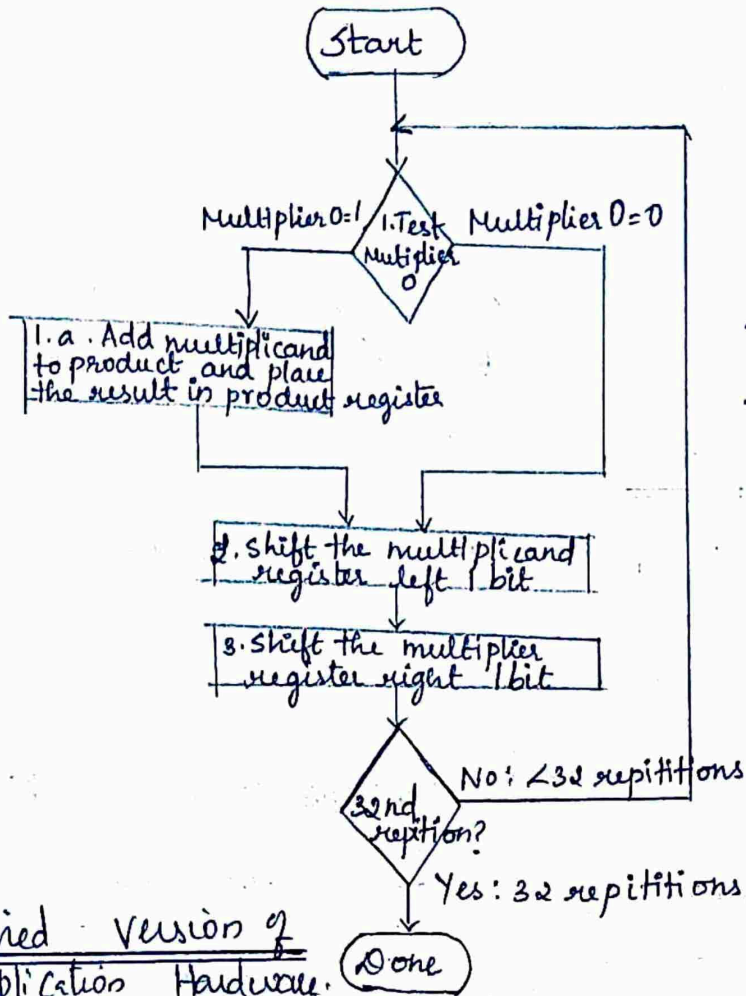 Start
Multiplier0=1
1.Test
Mutiplier
0
Multiplier 0=0
1.a. Add multiplicand
to product and place
the result in product register
2. Shift the multiplicand
register left 1 bit
3. Shift the multiplier
register right 1bit
32nd
repition?
No: <32 repititions
Yes: 32 repititions
Version of
Hardware.
Done